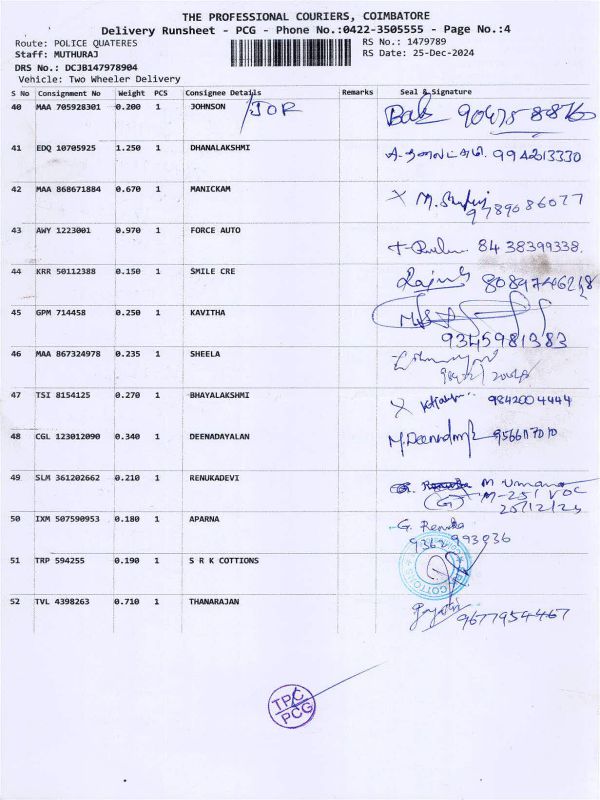 THE PROFESSIONAL COURIERS, COIMBATORE
Delivery Runsheet - PCG - Phone No.:0422-3505555 - Page No.:4
Route: POLICE QUATERES RS No.: 1479789
Staff: MUTHURAJ RS Date: 25-Dec-2024
DRS No.: DCJB147978904
Vehicle: Two Wheeler Delivery
S No Consignment No Weight PCS Consignee Details Remarks Seal & Signature
40 MAA 705928301 0.200 1 JOHNSON
41 EDQ 10705925 1.250 1 DHANALAKSHMI 994213330
42 MAA 868671884 0.670 1 MANICKAM 9789086077
43 AWY 1223001 0.970 1 FORCE AUTO 8438399338.
44 KRR 50112388 0.150 1 SMILE CRE
45 GPM 714458 0.250 1 KAVITHA 9345981383
46 MAA 867324978 0.235 1 SHEELA
47 TSI 8154125 0.270 1 BHAYALAKSHMI 9842004444
48 CGL 123012090 0.340 1 DEENADAYALAN
49 SLM 361202662 0.210 1 RENUKADEVI M Umana
M-25/ VOC
25/12/24
50 IXM 507590953 0.180 1 APARNA G. Renuka
9362993036
51 TRP 594255 0.190 1 S R K COTTIONS COTTONS
52 TVL 4398263 0.710 1 THANARAJAN Gayatri 9677954467
TPC
PCG